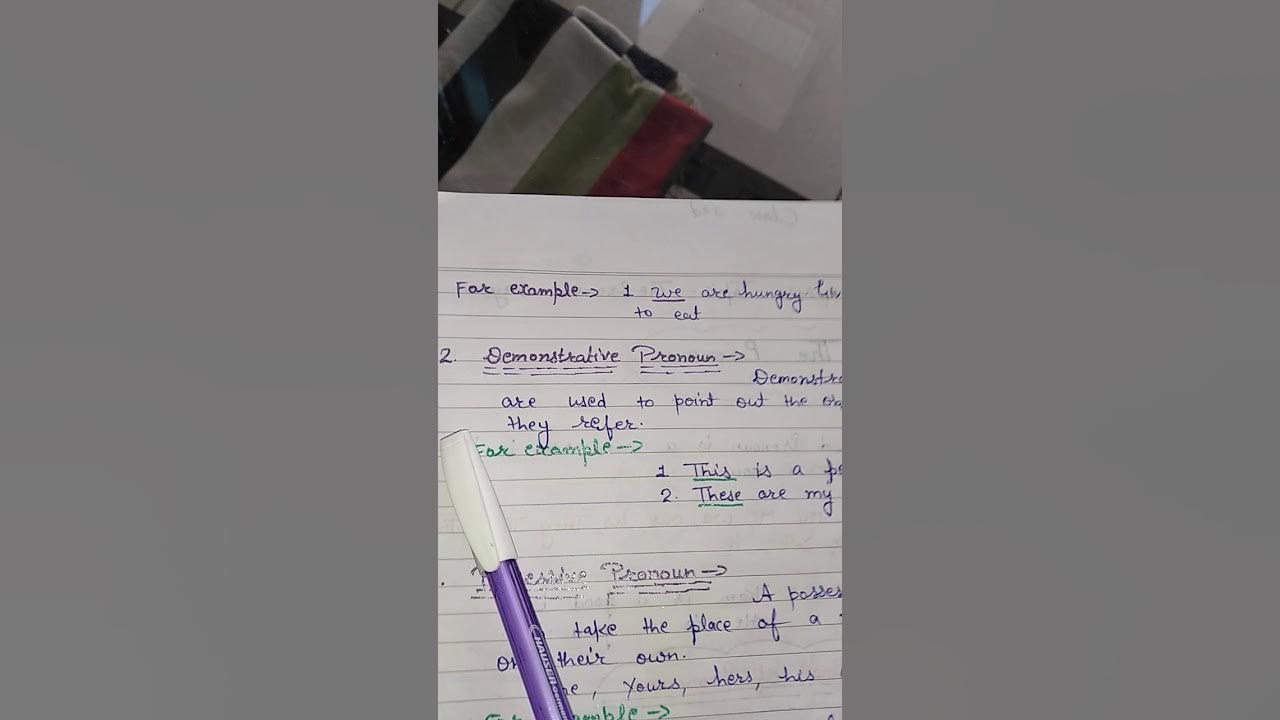 For example→ 1 We are hungry
to eat
2. Demonstrative Pronoun →
Demonstra
are used to point out the
they refer.
For example →
1 This is a
2. These are my
Pronoun →
A posses
take the place of a
their own.
, Yours, hers, his
→